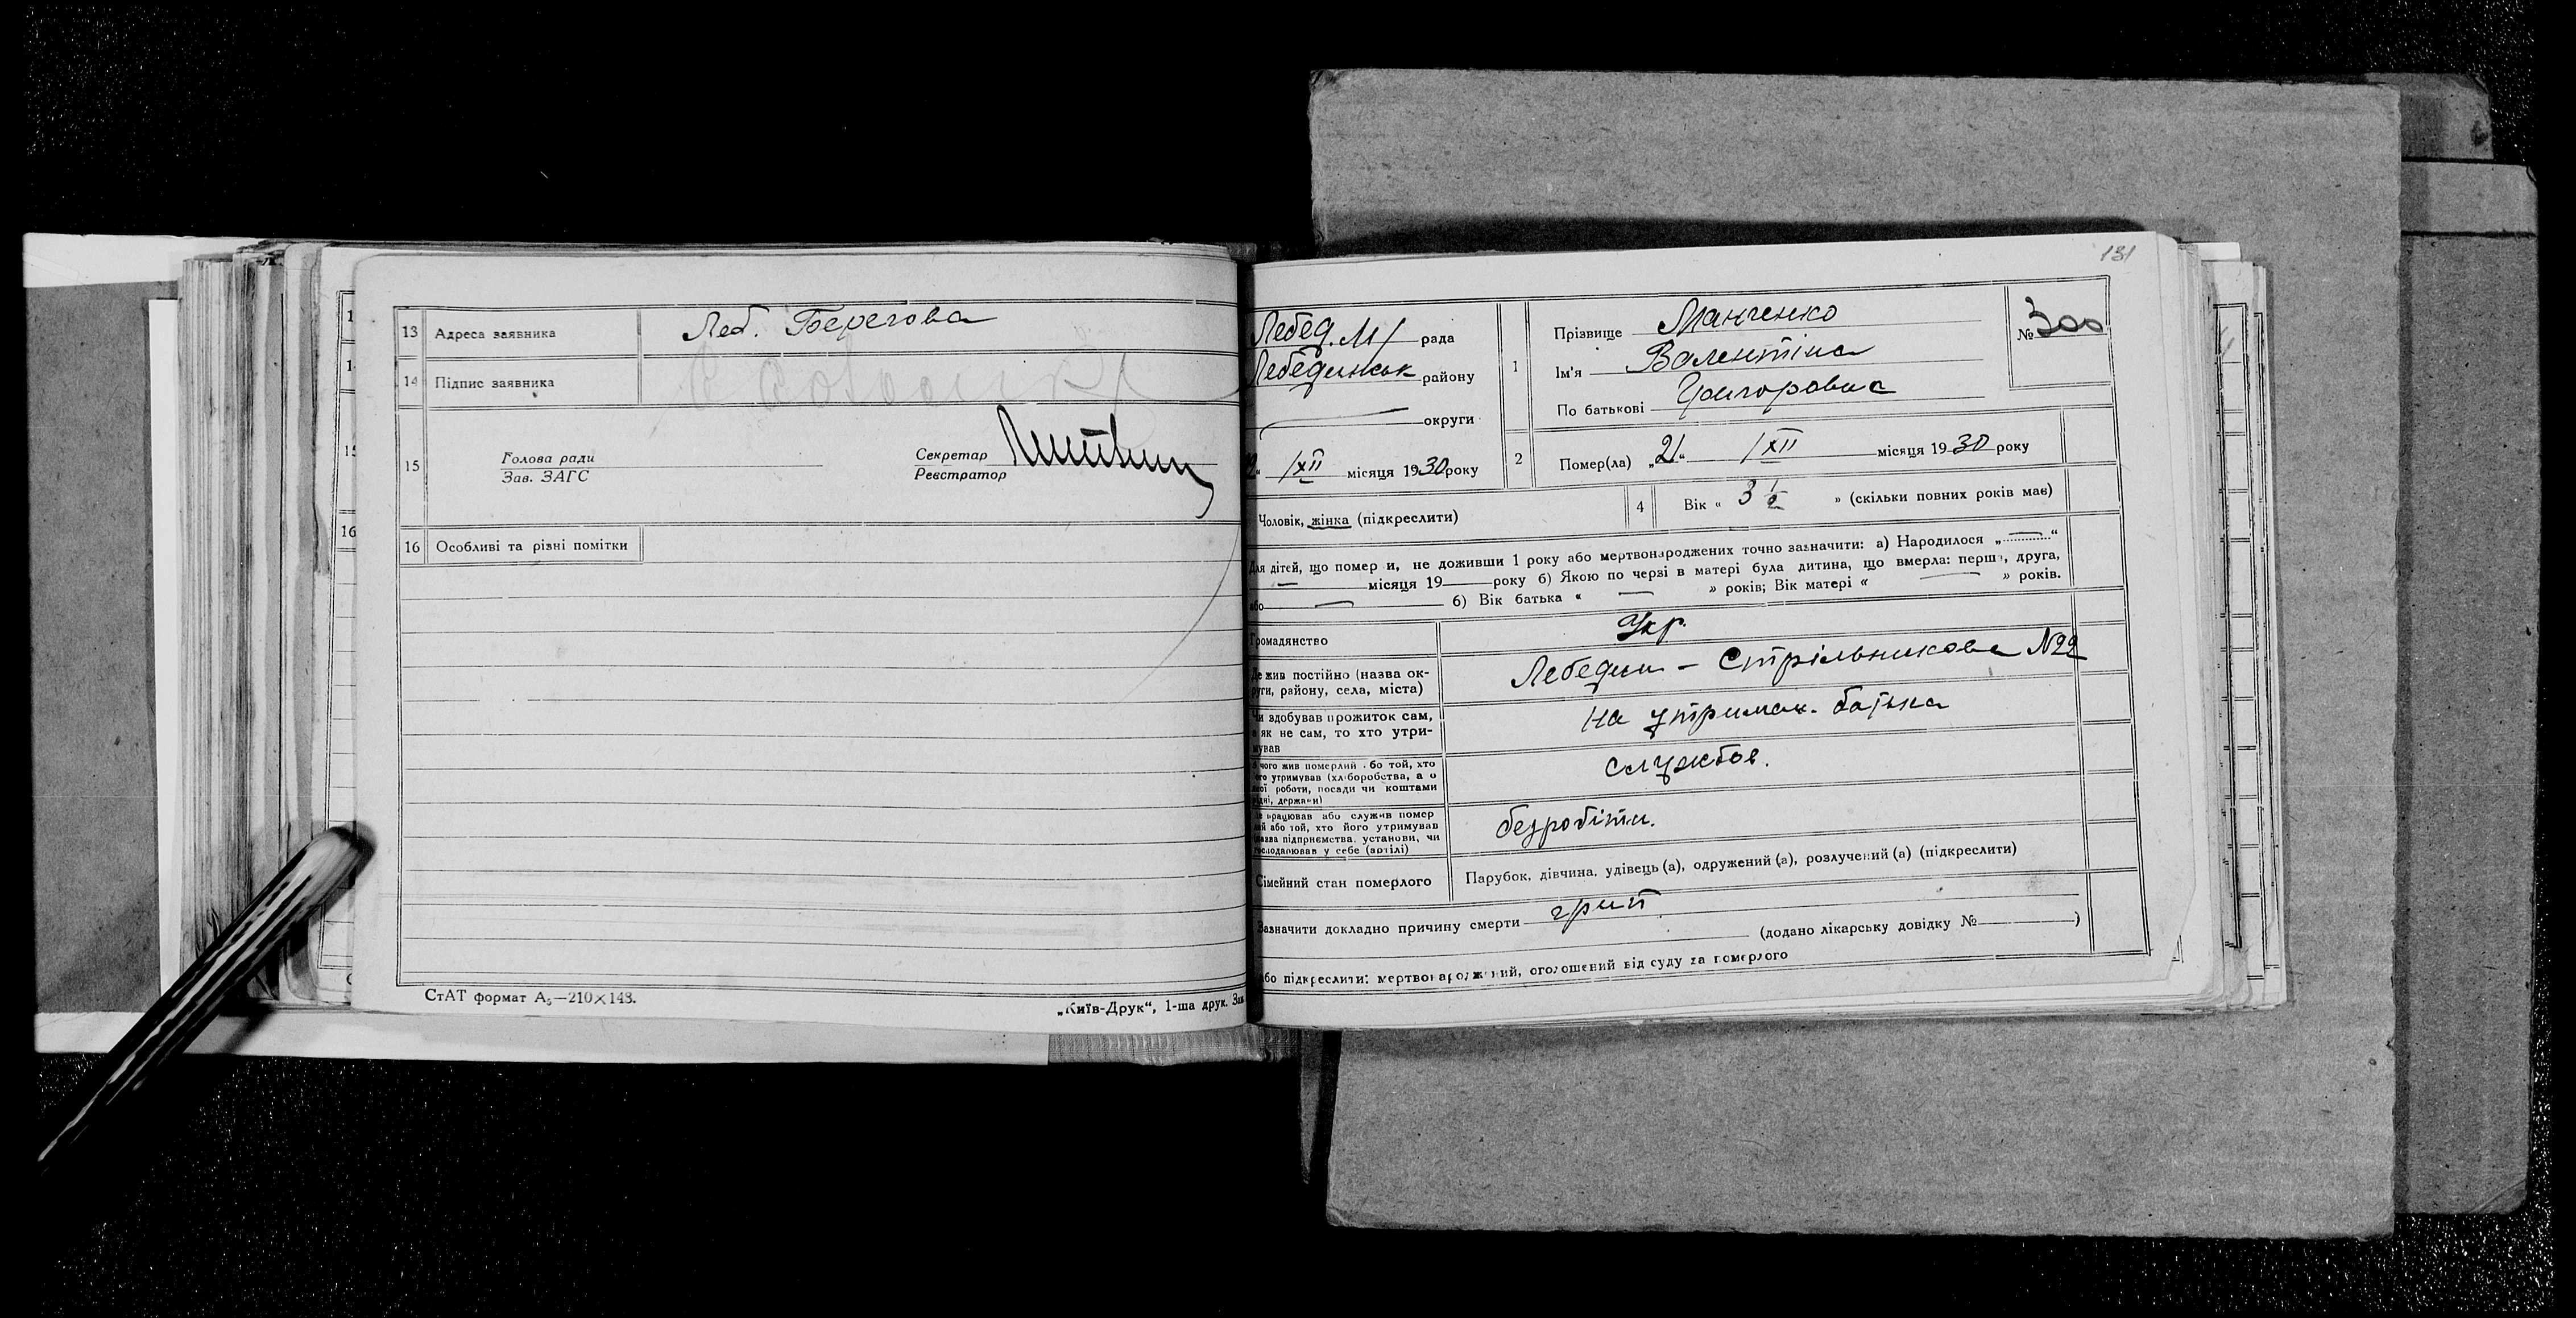 13 Адреса заявника Леб. Берегова
14 Підпис заявника
15 Голова ради
Зав. ЗАГС
Секретар
Реєстратор
16 Особливі та різні помітки
СтАТ формат А₅—210×148.
„Київ-Друк“, 1-ша друк. Зам
131
Лебед. М/ рада
Лебединськ району
округи
“ /XII місяця 1930 року
1 Прізвище Манченко
Ім'я Валентіна
По батькові Григоровна
№ 300
2 Помер(ла) „21“ /XII місяця 1930 року
Чоловік, жінка (підкреслити)
4 Вік « 3 ½ » (скільки повних років має)
Для дітей, що помер и, не доживши 1 року або мертвонароджених точно зазначити: а) Народилося „ — “
— місяця 19 — року б) Якою по черзі в матері була дитина, що вмерла: перша, друга,
або — б) Вік батька « — » років; Вік матері « — » років.
Громадянство Укр.
Де жив постійно (назва ок-
руги, району, села, міста) Лебедин – Стрільникова N22
Чи здобував прожиток сам,
а як не сам, то хто утри-
мував на утриман. батька
З чого жив померлий або той, хто
його утримував (хліборобства, а о
якої роботи, посади чи коштами
рідні, держави) службов.
Де працював або служив помер
лий або той, хто його утримував
(назва підприємства, установи, чи
господарював у себе (артілі) безробітн.
Сімейний стан померлого Парубок, дівчина, удівець (а), одружений (а), розлучений (а) (підкреслити)
Зазначити докладно причину смерти грип
(додано лікарську довідку № )
або підкреслити: мертвонароджений, оголошений від суду за померлого